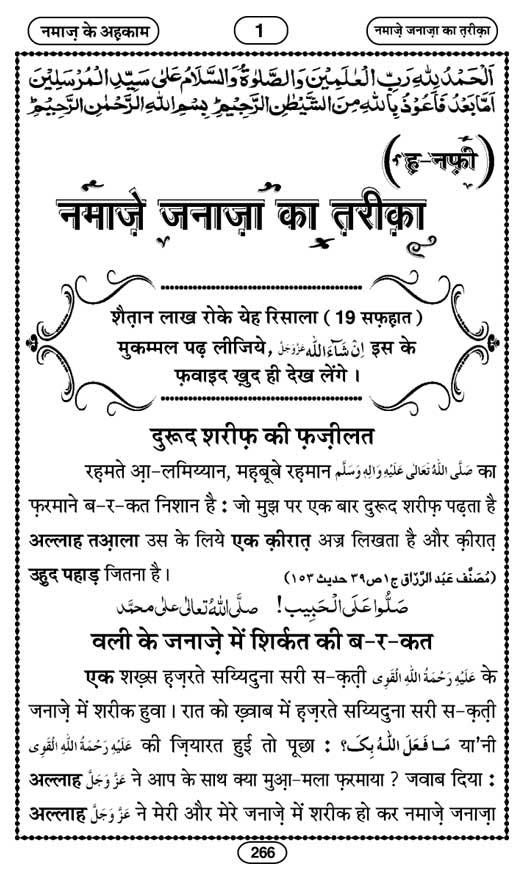 नमाज़ के अहकाम
1
नमाज़े जनाज़ा का त़रीक़ा
اَلْحَمْدُ لِلّٰهِ رَبِّ الْعٰلَمِیْنَ وَالصَّلٰوةُ وَالسَّلَامُ عَلٰی سَیِّدِ الْمُرْسَلِیْنَ
اَمَّا بَعْدُ فَاَعُوْذُ بِاللّٰهِ مِنَ الشَّیْطٰنِ الرَّجِیْمِ ؕ بِسْمِ اللّٰهِ الرَّحْمٰنِ الرَّحِیْمِ ؕ
(ह़-नफ़ी)
नमाज़े जनाज़ा का त़रीक़ा
शैत़ान लाख रोके येह रिसाला ( 19 सफ़ह़ात )
मुकम्मल पढ़ लीजिये, اِنْ شَآءَ اللّٰه عَزَّوَجَلَّ इस के
फ़वाइद ख़ुद ही देख लेंगे ।
दुरूद शरीफ़ की फ़ज़ीलत
रह़मते आ़-लमिय्यान, मह़बूबे रह़मान صَلَّی اللّٰهُ تَعَالٰی عَلَیْهِ وَاٰلِهٖ وَسَلَّم का
फ़रमाने ब-र-कत निशान है : जो मुझ पर एक बार दुरूद शरीफ़ पढ़ता है
अल्लाह तआ़ला उस के लिये एक क़ीरात़ अज्र लिखता है और क़ीरात़
उह़ुद पहाड़ जितना है । (مُصَنَّف عَبْدُ الرَّزّاق ج۱ ص۳۹ حدیث ۱۵۳)
صَلُّوا عَلَی الْحَبِیْب! صلَّی اللّٰهُ تعالٰی علٰی محمَّد
वली के जनाज़े में शिर्कत की ब-र-कत
एक शख़्स ह़ज़रते सय्यिदुना सरी स-क़त़ी عَلَیْهِ رَحْمَةُ اللّٰهِ الْقَوِی के
जनाज़े में शरीक हुवा । रात को ख़्वाब में ह़ज़रते सय्यिदुना सरी स-क़त़ी
عَلَیْهِ رَحْمَةُ اللّٰهِ الْقَوِی की ज़ियारत हुई तो पूछा : مَا فَعَلَ اللّٰهُ بِکَ؟ या'नी
अल्लाह عَزَّوَجَلَّ ने आप के साथ क्या मुआ़-मला फ़रमाया ? जवाब दिया :
अल्लाह عَزَّوَجَلَّ ने मेरी और मेरे जनाज़े में शरीक हो कर नमाज़े जनाज़ा
266